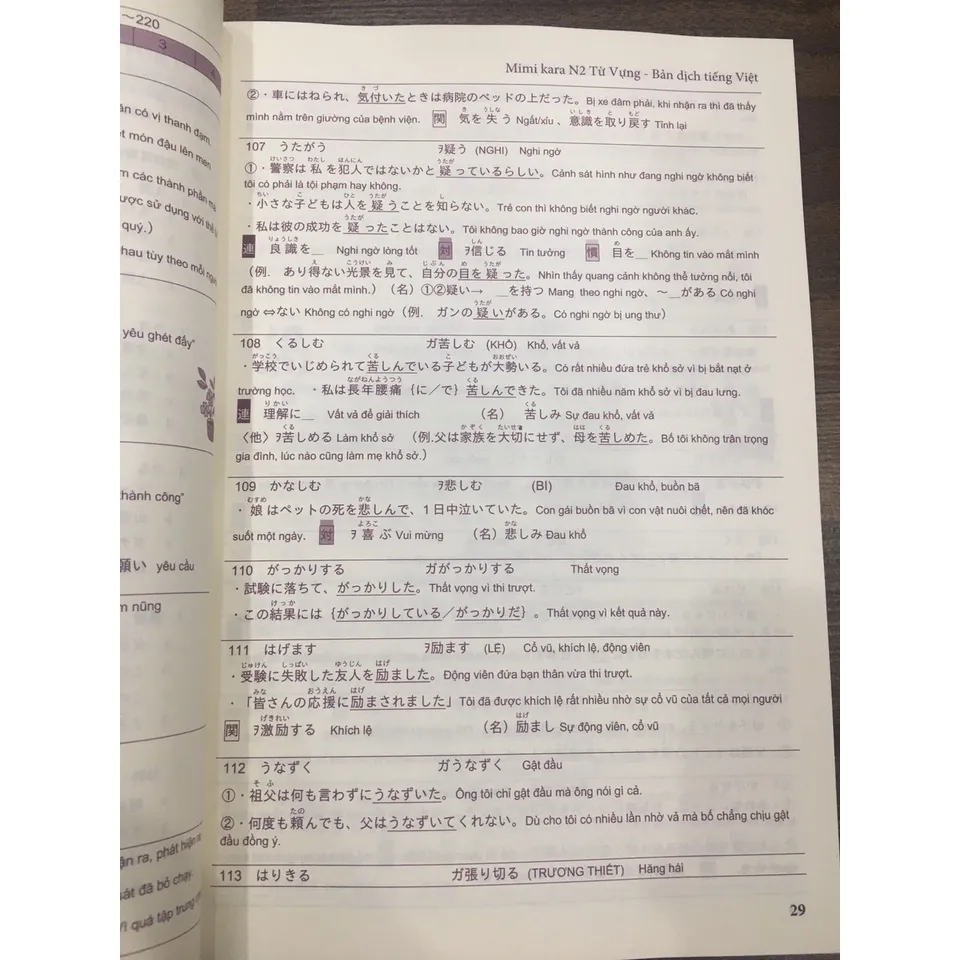 ～220
3
4
ăn có vị thanh đạm.
ệt món đậu lên men
m các thành phần mà
ược sử dụng với thể l
quý.)
hau tùy theo mỗi ngư
yêu ghét đấy"
thành công"
願い yêu cầu
m nũng
ận ra, phát hiện ra
sát đã bỏ chạy.
vì quá tập trung
Mimi kara N2 Từ Vựng - Bản dịch tiếng Việt
②・車にはねられ、気付いたときは病院のベッドの上だった。Bị xe đâm phải, khi nhận ra thì đã thấy
mình nằm trên giường của bệnh viện. 関 気を失う Ngất/xỉu 、意識を取り戻す Tỉnh lại
107 うたがう ヲ疑う (NGHI) Nghi ngờ
①・警察は私を犯人ではないかと疑っているらしい。Cảnh sát hình như đang nghi ngờ không biết
tôi có phải là tội phạm hay không.
・小さな子どもは人を疑うことを知らない。Trẻ con thì không biết nghi ngờ người khác.
・私は彼の成功を疑ったことはない。Tôi không bao giờ nghi ngờ thành công của anh ấy.
連 良識を＿ Nghi ngờ lòng tốt 対 ヲ信じる Tin tưởng 慣 目を＿ Không tin vào mắt mình
（例. あり得ない光景を見て、自分の目を疑った。Nhìn thấy quang cảnh không thể tưởng nổi, tôi
đã không tin vào mắt mình.）（名）①②疑い→ ＿を持つ Mang theo nghi ngờ、～＿がある Có nghi
ngờ ⇔ない Không có nghi ngờ（例. ガンの疑いがある。Có nghi ngờ bị ung thư）
108 くるしむ ガ苦しむ (KHỔ) Khổ, vất vả
・学校でいじめられて苦しんでいる子どもが大勢いる。Có rất nhiều đứa trẻ khổ sở vì bị bắt nạt ở
trường học. ・私は長年腰痛｛に／で｝苦しんできた。Tôi đã nhiều năm khổ sở vì bị đau lưng.
連 理解に＿ Vất vả để giải thích （名）苦しみ Sự đau khổ, vất vả
〈他〉ヲ苦しめる Làm khổ sở （例.父は家族を大切にせず、母を苦しめた。Bố tôi không trân trọng
gia đình, lúc nào cũng làm mẹ khổ sở.）
109 かなしむ ヲ悲しむ (BI) Đau khổ, buồn bã
・娘はペットの死を悲しんで、１日中泣いていた。Con gái buồn bã vì con vật nuôi chết, nên đã khóc
suốt một ngày. 対 ヲ喜ぶ Vui mừng （名）悲しみ Đau khổ
110 がっかりする ガがっかりする Thất vọng
・試験に落ちて、がっかりした。Thất vọng vì thi trượt.
・この結果には｛がっかりしている／がっかりだ｝。Thất vọng vì kết quả này.
111 はげます ヲ励ます (LỆ) Cổ vũ, khích lệ, động viên
・受験に失敗した友人を励ました。Động viên đứa bạn thân vừa thi trượt.
・「皆さんの応援に励まされました」Tôi đã được khích lệ rất nhiều nhờ sự cổ vũ của tất cả mọi người
関 ヲ激励する Khích lệ （名）励まし Sự động viên, cổ vũ
112 うなずく ガうなずく Gật đầu
①・祖父は何も言わずにうなずいた。Ông tôi chỉ gật đầu mà ông nói gì cả.
②・何度も頼んでも、父はうなずいてくれない。Dù cho tôi có nhiều lần nhờ vả mà bố chẳng chịu gật
đầu đồng ý.
113 はりきる ガ張り切る (TRƯƠNG THIẾT) Hăng hái
29